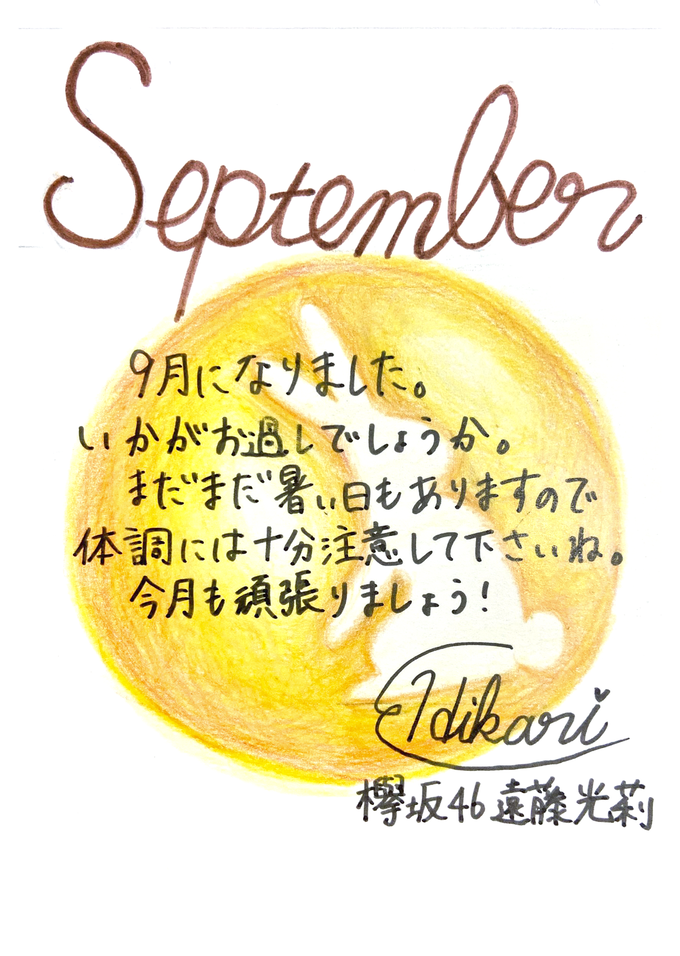 September
9月になりました。
いかがお過しでしょうか。
まだまだ暑い日もありますので
体調には十分注意して下さいね。
今月も頑張りましょう!
Hikari
欅坂46 遠藤光莉